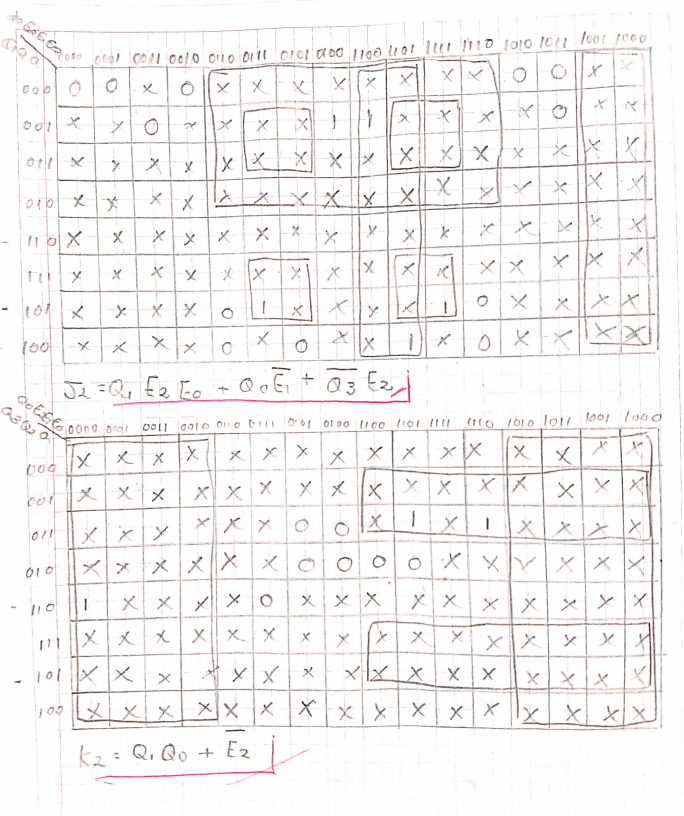 Q0E2E1E0
Q3Q2Q1
0000 0001 0011 0010 0110 0111 0101 0100 1100 1101 1111 1110 1010 1011 1001 1000
000 0 0 x 0 x x x x x x x x 0 0 x x
001 x x 0 x x x x 1 1 x x x x 0 x x
011 x x x x x x x x x x x x x x x x
010 x x x x x x x x x x x x x x x x
- 110 x x x x x x x x x x x x x x x x
111 x x x x x x x x x x x x x x x x
- 101 x x x x 0 1 x x x x 1 0 x x x x
100 x x x x 0 x 0 x x 1 x 0 x x x x
J2 = Q1 E2 E0 + Q0 E̅1̅ + Q̅3̅ E2
Q0E2E1E0
Q3Q2Q1
0000 0001 0011 0010 0110 0111 0101 0100 1100 1101 1111 1110 1010 1011 1001 1000
000 x x x x x x x x x x x x x x x x
001 x x x x x x x x x x x x x x x x
011 x x x x x x 0 0 x 1 x 1 x x x x
010 x x x x x x 0 0 0 0 x x x x x x
- 110 1 x x x x 0 x x x x x x x x x x
111 x x x x x x x x x x x x x x x x
- 101 x x x x x x x x x x x x x x x x
100 x x x x x x x x x x x x x x x x
K2 = Q1 Q0 + E̅2̅